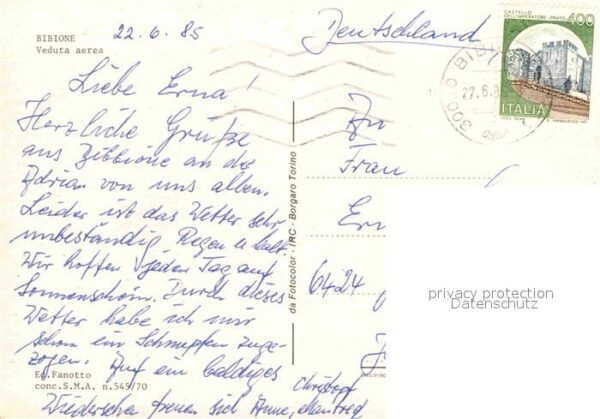 BIBIONE
Veduta aerea
22.6.85
Deutschland
CASTELLO
DELL'IMPERATORE - PRATO
400
ITALIA
27.6.8
Liebe Erna!
Herzliche Grüße
aus Bibbione an der
Adria von uns allen.
Leider ist das Wetter sehr
unbeständig Regen u kalt.
Wir hoffen jeden Tag auf
Sonnenschein. Durch dieses
Wetter habe ich mir
schon ein Schnupfen zuge-
zogen. Auf ein baldiges
Wiedersehen freuen sich Anne, Manfred
Christoph
Ed.Fanotto
conc.S.M.A. n.545/70
da Fotocolor - IRC - Borgaro Torino
An
Frau
Ern
6424
privacy protection
Datenschutz